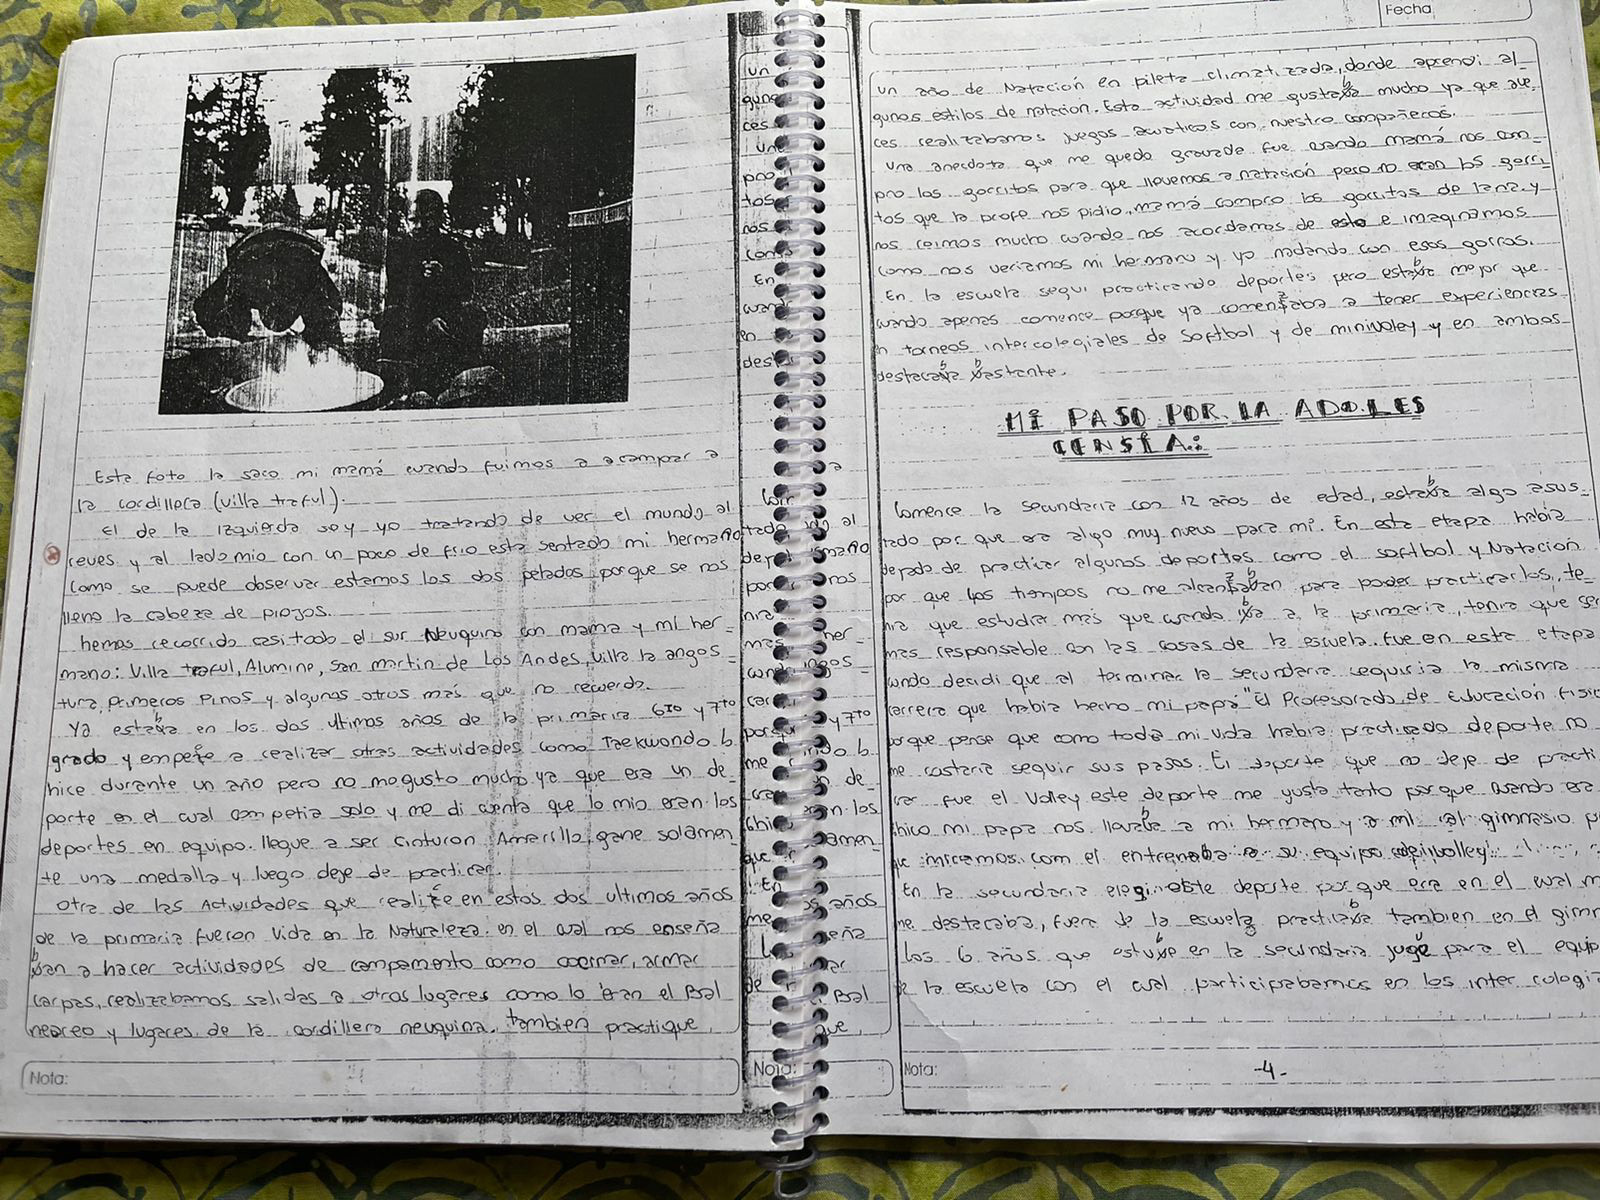 Esta foto la saco mi mamá cuando fuimos a acampar a
la cordillera (villa traful).
El de la izquierda soy yo tratando de ver el mundo al
reves y al lado mio con un poco de frio esta sentado mi hermano
como se puede observar estamos los dos pelados porque se nos
lleno la cabeza de piojos.
hemos recorrido casi todo el sur Neuquino con mama y mi her-
mano: Villa traful, Alumine, san martin de Los Andes, Villa la angos-
tura, Primeros Pinos y algunas otros más que no recuerdo.
Ya estaba en los dos ultimos años de la primaria 6to y 7to
grado y empece a realizar otras actividades como Taekwondo l
hice durante un año pero no me gusto mucho ya que era un de-
porte en el cual competia solo y me di cuenta que lo mio eran los
deportes en equipo. llegue a ser cinturon Amarillo, gane solamen-
te una medalla y luego deje de practicar.
Otra de las Actividades que realice en estos dos ultimos años
de la primaria fueron Vida en la Naturaleza: en el cual nos enseña
ban a hacer actividades de campamento como cocinar, armar
carpas, realizabamos salidas a otros lugares como lo eran el Bal
neareo y lugares de la cordillera neuquina. tambien practique
Nota:
Fecha
un año de Natación en pileta climatizada, donde aprendi al-
gunos estilos de natacion. Esta actividad me gustaba mucho ya que ave
ces realizabamos juegos acuaticos con nuestro compañeros.
Una anecdota que me quedo gravada fue cuando mamá nos com-
pro los gorritos para que llevemos a natación pero no eran los gorri-
tos que la profe nos pidio, mamá compro los gorritos de lana y
nos reimos mucho cuando nos acordamos de esto e imaginamos
como nos veriamos mi hermano y yo nadando con esos gorros.
En la escuela segui practicando deportes pero estaba mejor que
cuando apenas comence porque ya comenzaba a tener experiencias
en torneos intercolegiales de Softbol y de minivoley y en ambos
destacaba bastante.
MI PASO POR LA ADOLES
CENSIA.:
Comence la secundaria con 12 años de edad, estaba algo asus-
tado por que era algo muy nuevo para mi. En esta etapa habia
dejado de practicar algunos deportes como el softbol y Natación
por que los tiempos no me alcanzaban para poder practicarlos, te-
nia que estudiar más que cuando iba a la primaria, tenia que ser
mas responsable con las cosas de la escuela. fue en esta etapa
cuando decidi que al terminar la secundaria seguiria la misma
carrera que habia hecho mi papa "El Profesorado de Educación fisic
porque pense que como toda mi vida habia practicado deporte no
me costaria seguir sus pasos. El deporte que no deje de practi
car fue el Volley este deporte me gusta tanto porque cuando era
chico mi papa nos llevaba a mi hermano y a mi al gimnasio p
que miramos com el entrenaba a su equipo de volley.
En la secundaria elegi este deporte por que era en el cual m
me destacaba, fuera de la escuela practicaba tambien en el gimn
Los 6 años que estube en la secundaria juge para el equip
de la escuela con el cual participabamos en los inter cologia
Nota:
-4-